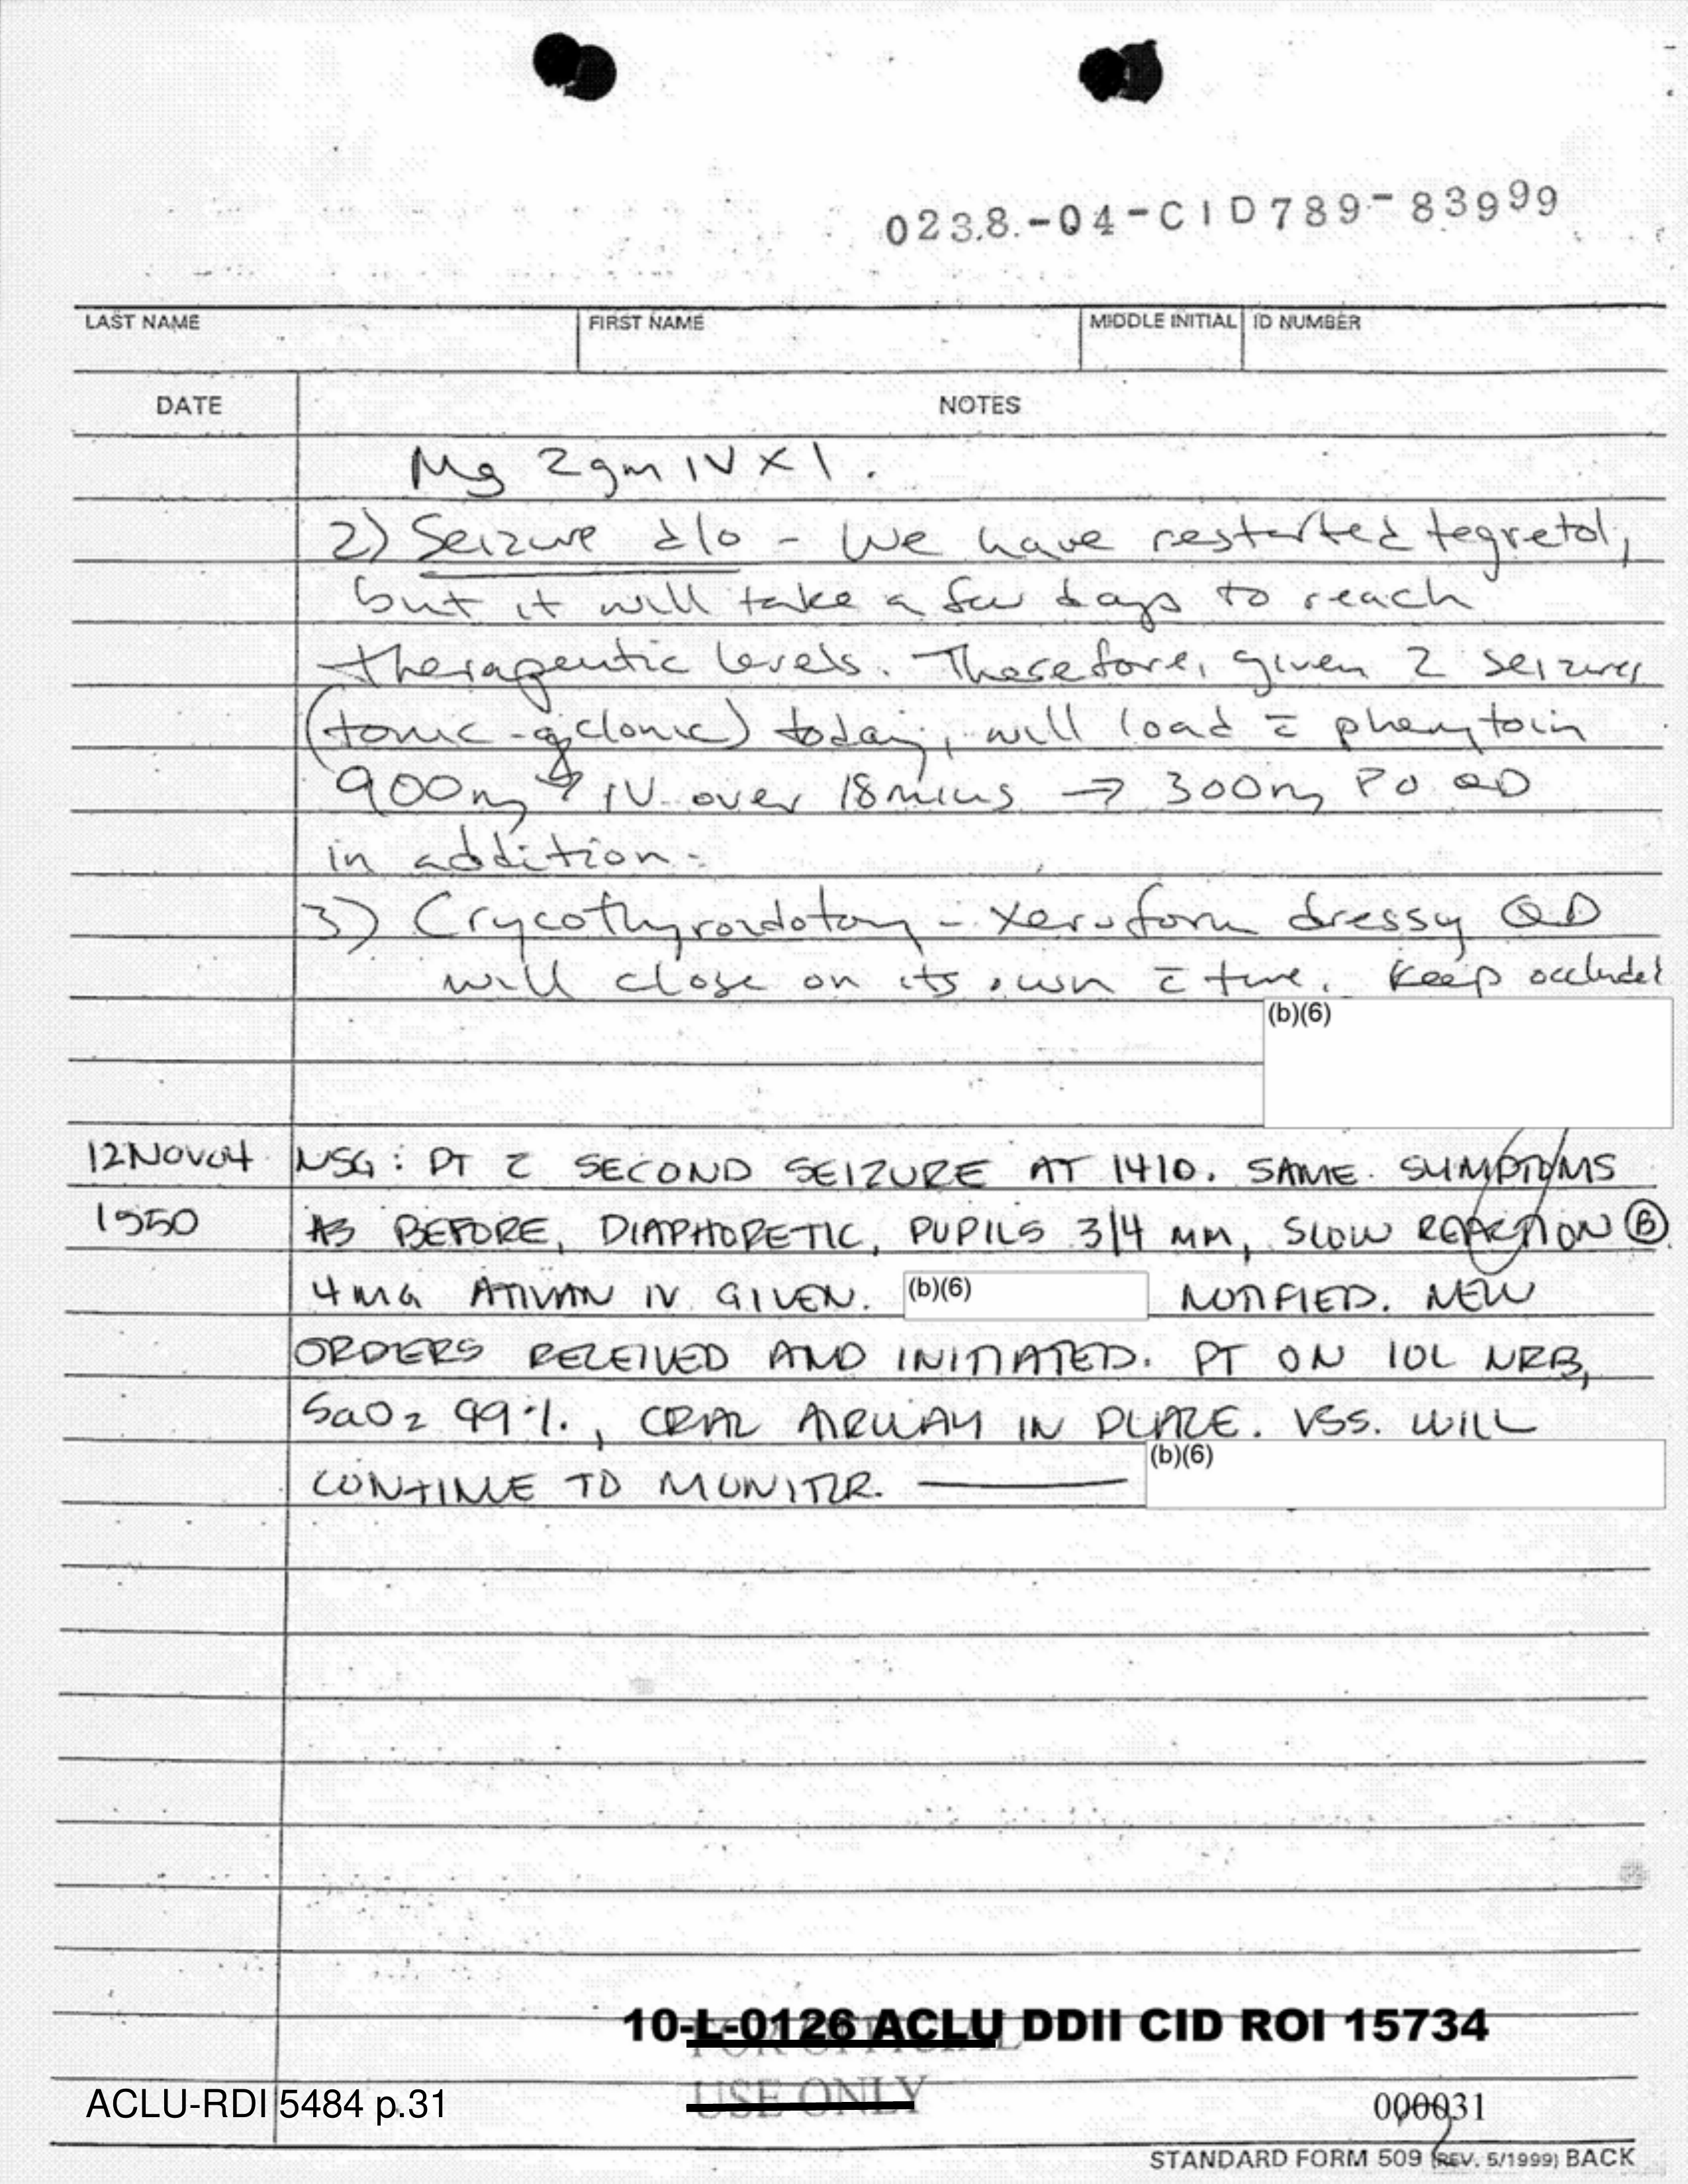 023.8.-04-CID789-83999
LAST NAME FIRST NAME MIDDLE INITIAL ID NUMBER
DATE NOTES
Mg 2gm IV X 1.
2) Seizure d/o - We have restarted tegretol,
but it will take a few days to reach
therapeutic levels. Therefore, given 2 seizures
(tonic-clonic) today, will load c̄ phenytoin
900mg IV over 18mins → 300mg PO QD
in addition.
3) Crycothyroidotomy - xeroform dressg QD
will close on its own c̄ time. Keep occluded
(b)(6)
12NOV04 NSG: PT c̄ SECOND SEIZURE AT 1410. SAME SYMPTOMS
1550 AS BEFORE, DIAPHORETIC, PUPILS 3/4 MM, SLOW REACTION Ⓑ
4MG ATIVAN IV GIVEN. (b)(6) NOTIFIED. NEW
ORDERS RECEIVED AND INITIATED. PT ON 10L NRB,
SaO2 99%, ORAL AIRWAY IN PLACE. VSS. WILL
CONTINUE TO MONITOR. (b)(6)
10-L-0126 ACLU DDII CID ROI 15734
FOR OFFICIAL
USE ONLY
ACLU-RDI 5484 p.31
000031
STANDARD FORM 509 (REV. 5/1999) BACK